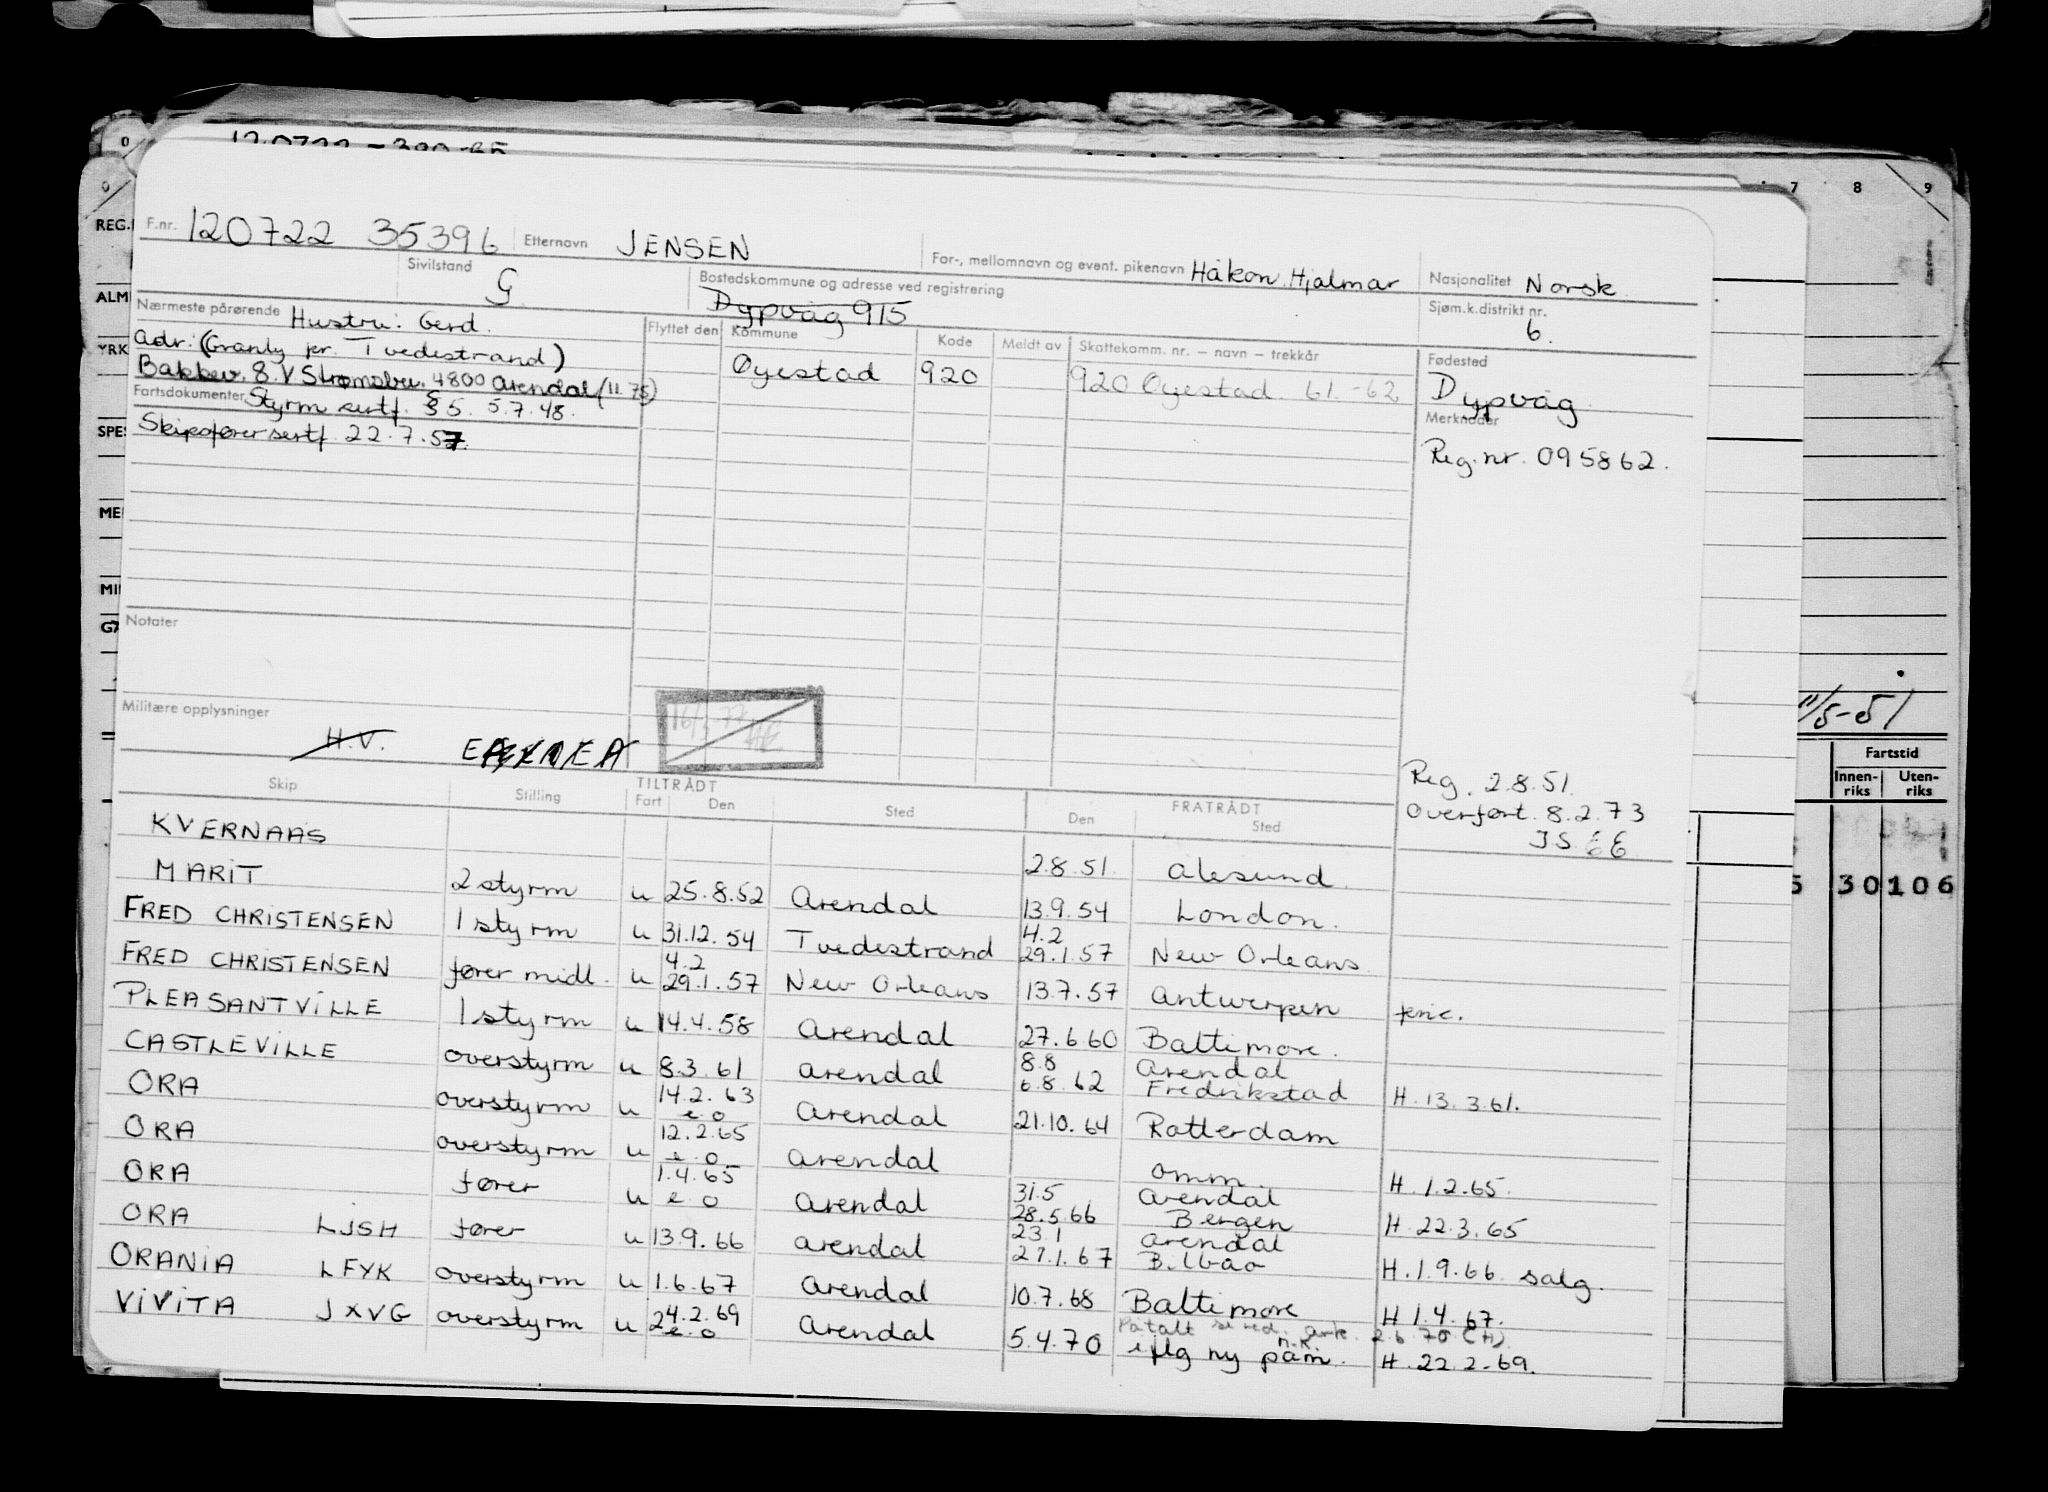 7 8 9
0
F.nr. 120722 35396 Etternavn JENSEN For-, mellomnavn og event. pikenavn Håkon Hjalmar Nasjonalitet Norsk
Sivilstand G Bostedskommune og adresse ved registrering Dypvåg 915 Sjøm.k.distrikt nr. 6.
Nærmeste pårørende Hustru: Gerd. Flyttet den Kommune Kode Meldt av Skattekomm. nr. – navn – trekkår Fødested
Adr: (Granly pr. Tvedestrand) Øyestad 920 920 Øyestad. 61-62 Dypvåg
Bakkev. 8. V Strømsbu. 4800 Arendal (11.75)
Fartsdokumenter Styrm sertf. §5. 5.7.48. Merknader
Skipsførersertf. 22.7.57. Reg.nr. 095862.
Notater
Militære opplysninger
H.V.
11/5-51
Fartstid
Innen-riks Uten-riks
30106
Reg. 2.8.51.
Overført. 8.2.73
Skip Stilling TILTRÅDT Fart Den Sted FRATRÅDT Den Sted
KVERNAAS 2.8.51. Ålesund.
MARIT 2 styrm u 25.8.52 Arendal 13.9.54 London.
FRED CHRISTENSEN 1 styrm u 31.12.54 Tvedestrand 4.2 29.1.57 New Orleans
FRED CHRISTENSEN fører midl. u 4.2 29.1.57 New Orleans 13.7.57 Antwerpen ferie.
PLEASANTVILLE 1 styrm u 14.4.58 Arendal 27.6.60 Baltimore.
CASTLEVILLE overstyrm u 8.3.61 Arendal 8.8 6.8.62 Arendal Fredrikstad H. 13.3.61.
ORA overstyrm u 14.2.63 e.o Arendal 21.10.64 Rotterdam
ORA overstyrm u 12.2.65 e.o Arendal omm. H. 1.2.65.
ORA fører u 1.4.65 e.o Arendal 31.5 28.5.66 Arendal Bergen H. 22.3.65
ORA LJSH fører u 13.9.66 Arendal 23.1 27.1.67 Arendal Bilbao H. 1.9.66 salg.
ORANIA LFYK overstyrm u 1.6.67 Arendal 10.7.68 Baltimore H 1.4.67.
VIVITA JXVG overstyrm u 24.2.69 e.o Arendal 5.4.70 iflg ny påm. H. 22.2.69.